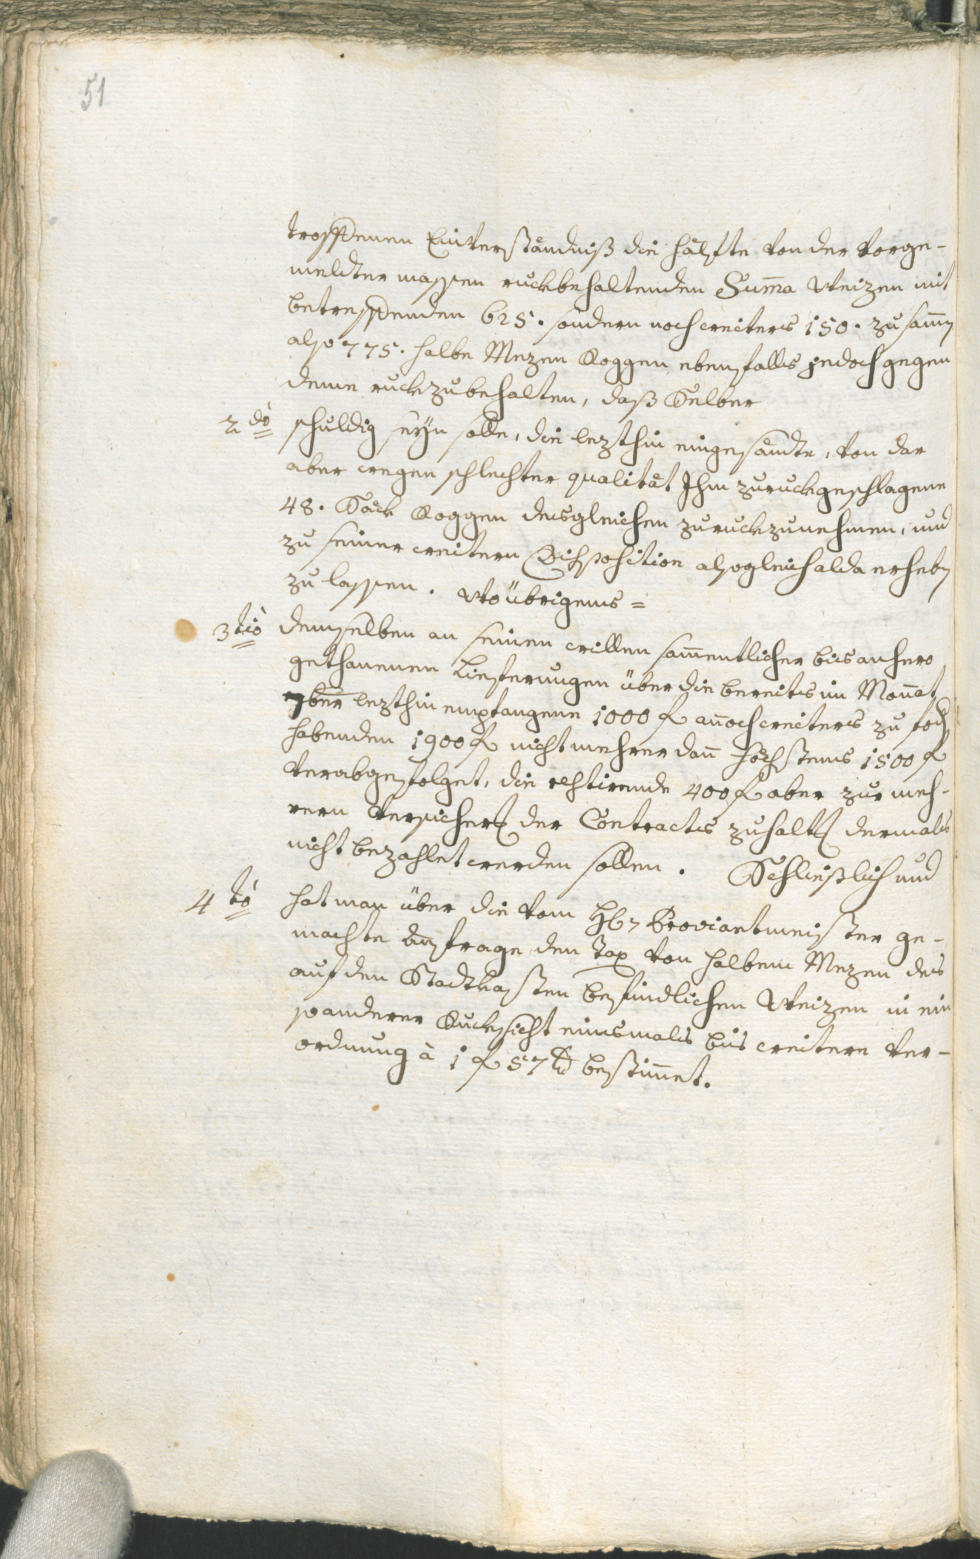 51
troffenen Einverständniß die hälfte von der vorge-
meldter massen ruckbehaltenden Summa Weizen mit
betreffenden 625. sondern noch weiters 150. zusamen
also 775. halbe Mezen Roggen ebenfalls jedoch gegen
deme ruckzubehalten, daß Selber
2dò schuldig seyn solle, die lezthin eingesandte, von dar
aber wegen schlechter qualität Ihm zuruckgeschlagene
48. Säck Roggen desgleichen zuruckzunehmen, und
zu seiner weitern Disposition alsogleich alda erheben
zu lassen. Wo übrigens =
3tiò demselben an seinen willen sammentlicher bis anhero
gethanenen Lieferungen über die bereits im Monnat
7ber lezthin empfangene 1000 f annoch weiters zu
habenden 1900 f nicht mehrer dann höchstens 1500 f
verabgefolget, die restirende 400 f aber zur meh-
rern Versicherung der Contracts zuhaltung dermals
nicht bezahlet werden sollen. Schließlich und
4tò hat man über die vom Proviantmeister ge-
machte Anfrage den Tax von halbem Mezen des
auf den Stadtkasten befindlichen Weizen in ein
so anderer Rucksicht einsmals bis weitere Ver-
ordnung à 1 f 57 bestimmet.